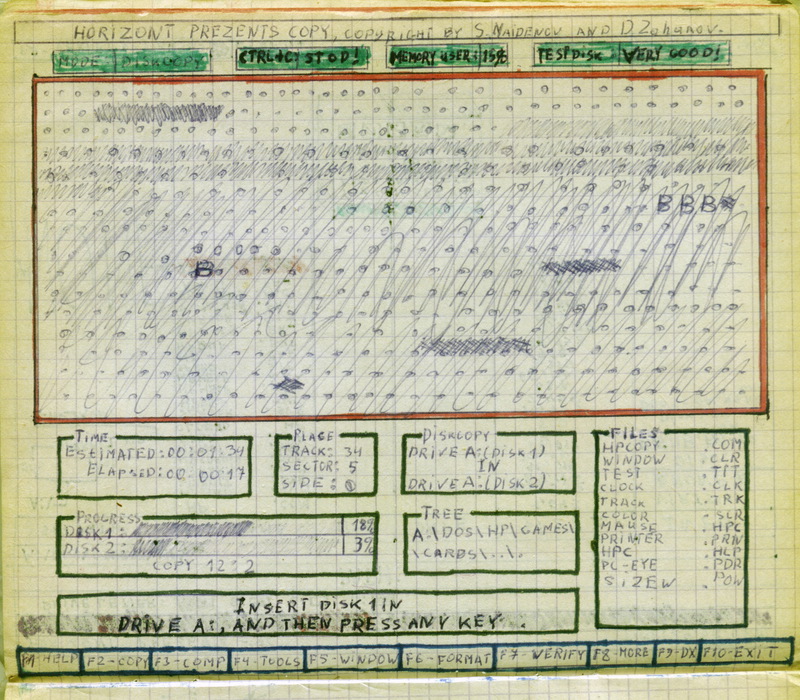 HORIZONT PREZENTS COPY, COPYRIGHT BY S. NAIDENOV AND D. Zahanov.
MODE DISKCOPY CTRL+C: STOP! MEMORY USER: 15% TESTDISK: VERY GOOD!
B B B
B
TIME
ESTIMATED: 00:01:34
ELAPSED: 00 00:17
PLACE
TRACK: 34
SECTOR: 5
SIDE: 0
DISKCOPY
DRIVE A: (DISK 1)
IN
DRIVE A: (DISK 2)
FILES
HPCOPY .COM
WINDOW .CLR
TEST .TIT
CLOCK .CLK
TRACK .TRK
COLOR .SCR
MAUSE .HPC
PRINTER .PRN
HPC .HLP
PC-EYE .PDR
SIZEW .POW
PROGRESS
DISK 1: 18%
DISK 2: 3%
COPY 1212
TREE
A:\DOS\HP\GAMES\
\CARDS\..\.
INSERT DISK 1 IN
DRIVE A:, AND THEN PRESS ANY KEY.
F1-HELP F2-COPY F3-COMP F4-TOOLS F5-WINDOW F6-FORMAT F7 VERIFY F8-MORE F9-DX F10-EXIT